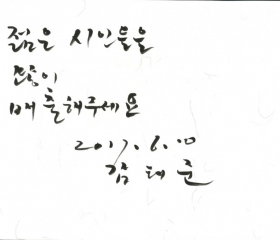 젊은 시인들을
많이
배출해주세요
2017. 6. 10
김태준